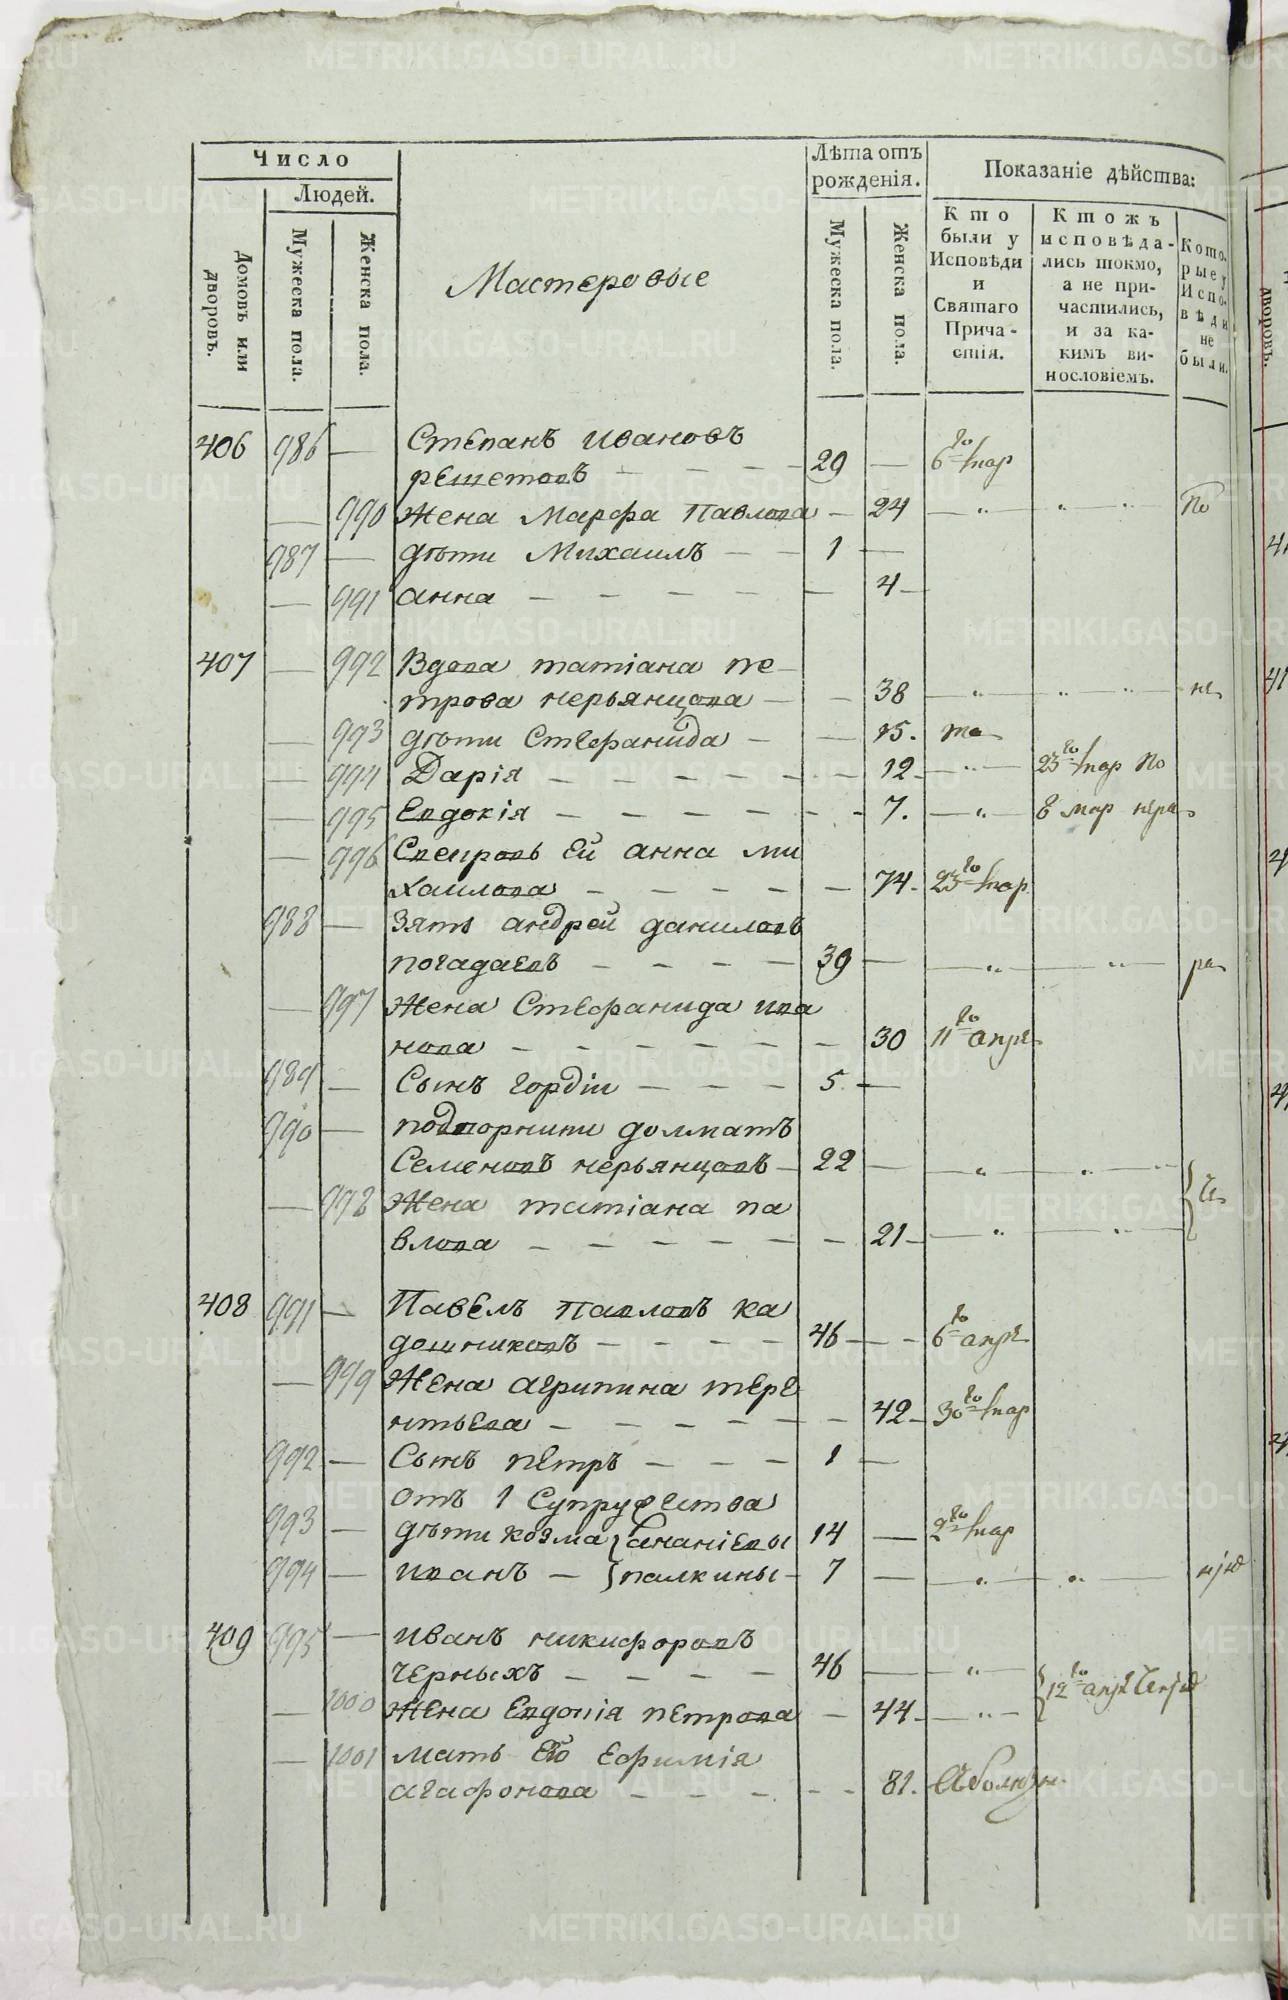 Число
Людей.
Домовъ или дворовъ.
Мужеска пола.
Женска пола.
Мастеровые
Лѣта отъ рожденія.
Мужеска пола.
Женска пола.
Показаніе дѣйства:
Кто были у Исповѣди и Святаго Причастія.
Ктожъ исповѣдались токмо, а не причастились, и за какимъ винословіемъ.
Которые у Исповѣди не были.
406 986 — Степанъ Ивановъ
решетовъ — — — — 29 — 6го мар
— 990 Жена Марфа Павлова — 24 — „ — „ — „ — по
987 — дѣти Михаилъ — — 1 —
— 991 анна — — — — — — 4 —
407 — 992 Вдова татіана пе-
трова нерьянцова — — 38 — „ — „ — „ — не
— 993 дѣти Стефанида — — 15. то
— 994 Дарія — — — — — — 12 — „ — 23го мар по
— 995 Евдокія — — — — — — 7. — „ — 8 мар
— 996 Свекровь Ей анна ми
хаилова — — — — — — 74. 23го мар
988 — Зять андрей даниловъ
погадаевъ — — — — 39 — — „ — „ —
— 997 Жена Стефанида ива
нова — — — — — — 30 11го апре
989 — Сынъ гордіи — — — 5 —
990 — подворники долматъ
Семеновъ нерьянцовъ — 22 — — „ — „ — „
— 998 Жена татіана па
влова — — — — — — 21 — — „ — „ —
408 991 — Павелъ Павловъ ка
дошниковъ — — — — 46 — — 6го апре
— 999 Жена агрипина тере
нтьева — — — — — — 42 — 30го мар
992 — Сынъ петръ — — — 1 —
отъ 1 Супружества
993 — дѣти козма { ананіевы 14 — 2го мар
994 — иванъ — { палкины — 7 — — „ — „ —
409 995 — иванъ никифоровъ
черныхъ — — — — 46 — — „ —
— 1000 Жена Евдокія петрова — 44 — — „ — 12го апре
— 1001 мать Его Ефимія
агафонова — — — — — — 81.
METRIKI.GASO-URAL.RU